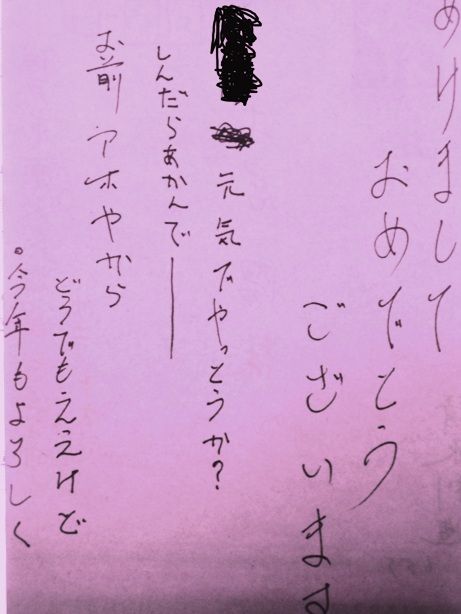 あけまして
おめでとう
ございます
元気でやっとうか?
しんだらあかんで――
お前アホやから
どうでもええけど
。今年もよろしく